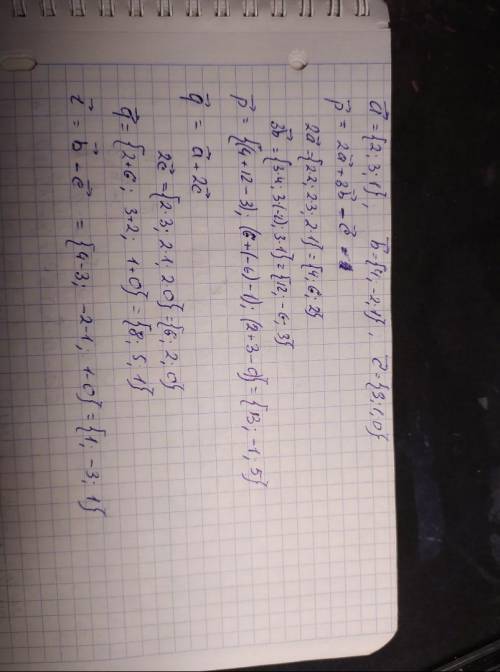 a⃗ = {2; 3; 1}, b⃗ = {4; -2; 1}, c⃗ = {3; 1; 0}
p⃗ = 2a⃗ + 3b⃗ - c⃗ =
2a⃗ = {2·2; 2·3; 2·1} = {4; 6; 2}
3b⃗ = {3·4; 3·(-2); 3·1} = {12; -6; 3}
p⃗ = {(4+12-3); (6+(-6)-1); (2+3-0)} = {13; -1; 5}
q⃗ = a⃗ + 2c⃗
2c⃗ = {2·3; 2·1; 2·0} = {6; 2; 0}
q⃗ = {2+6; 3+2; 1+0} = {8; 5; 1}
r⃗ = b⃗ - c⃗ = {4-3; -2-1; 1-0} = {1; -3; 1}